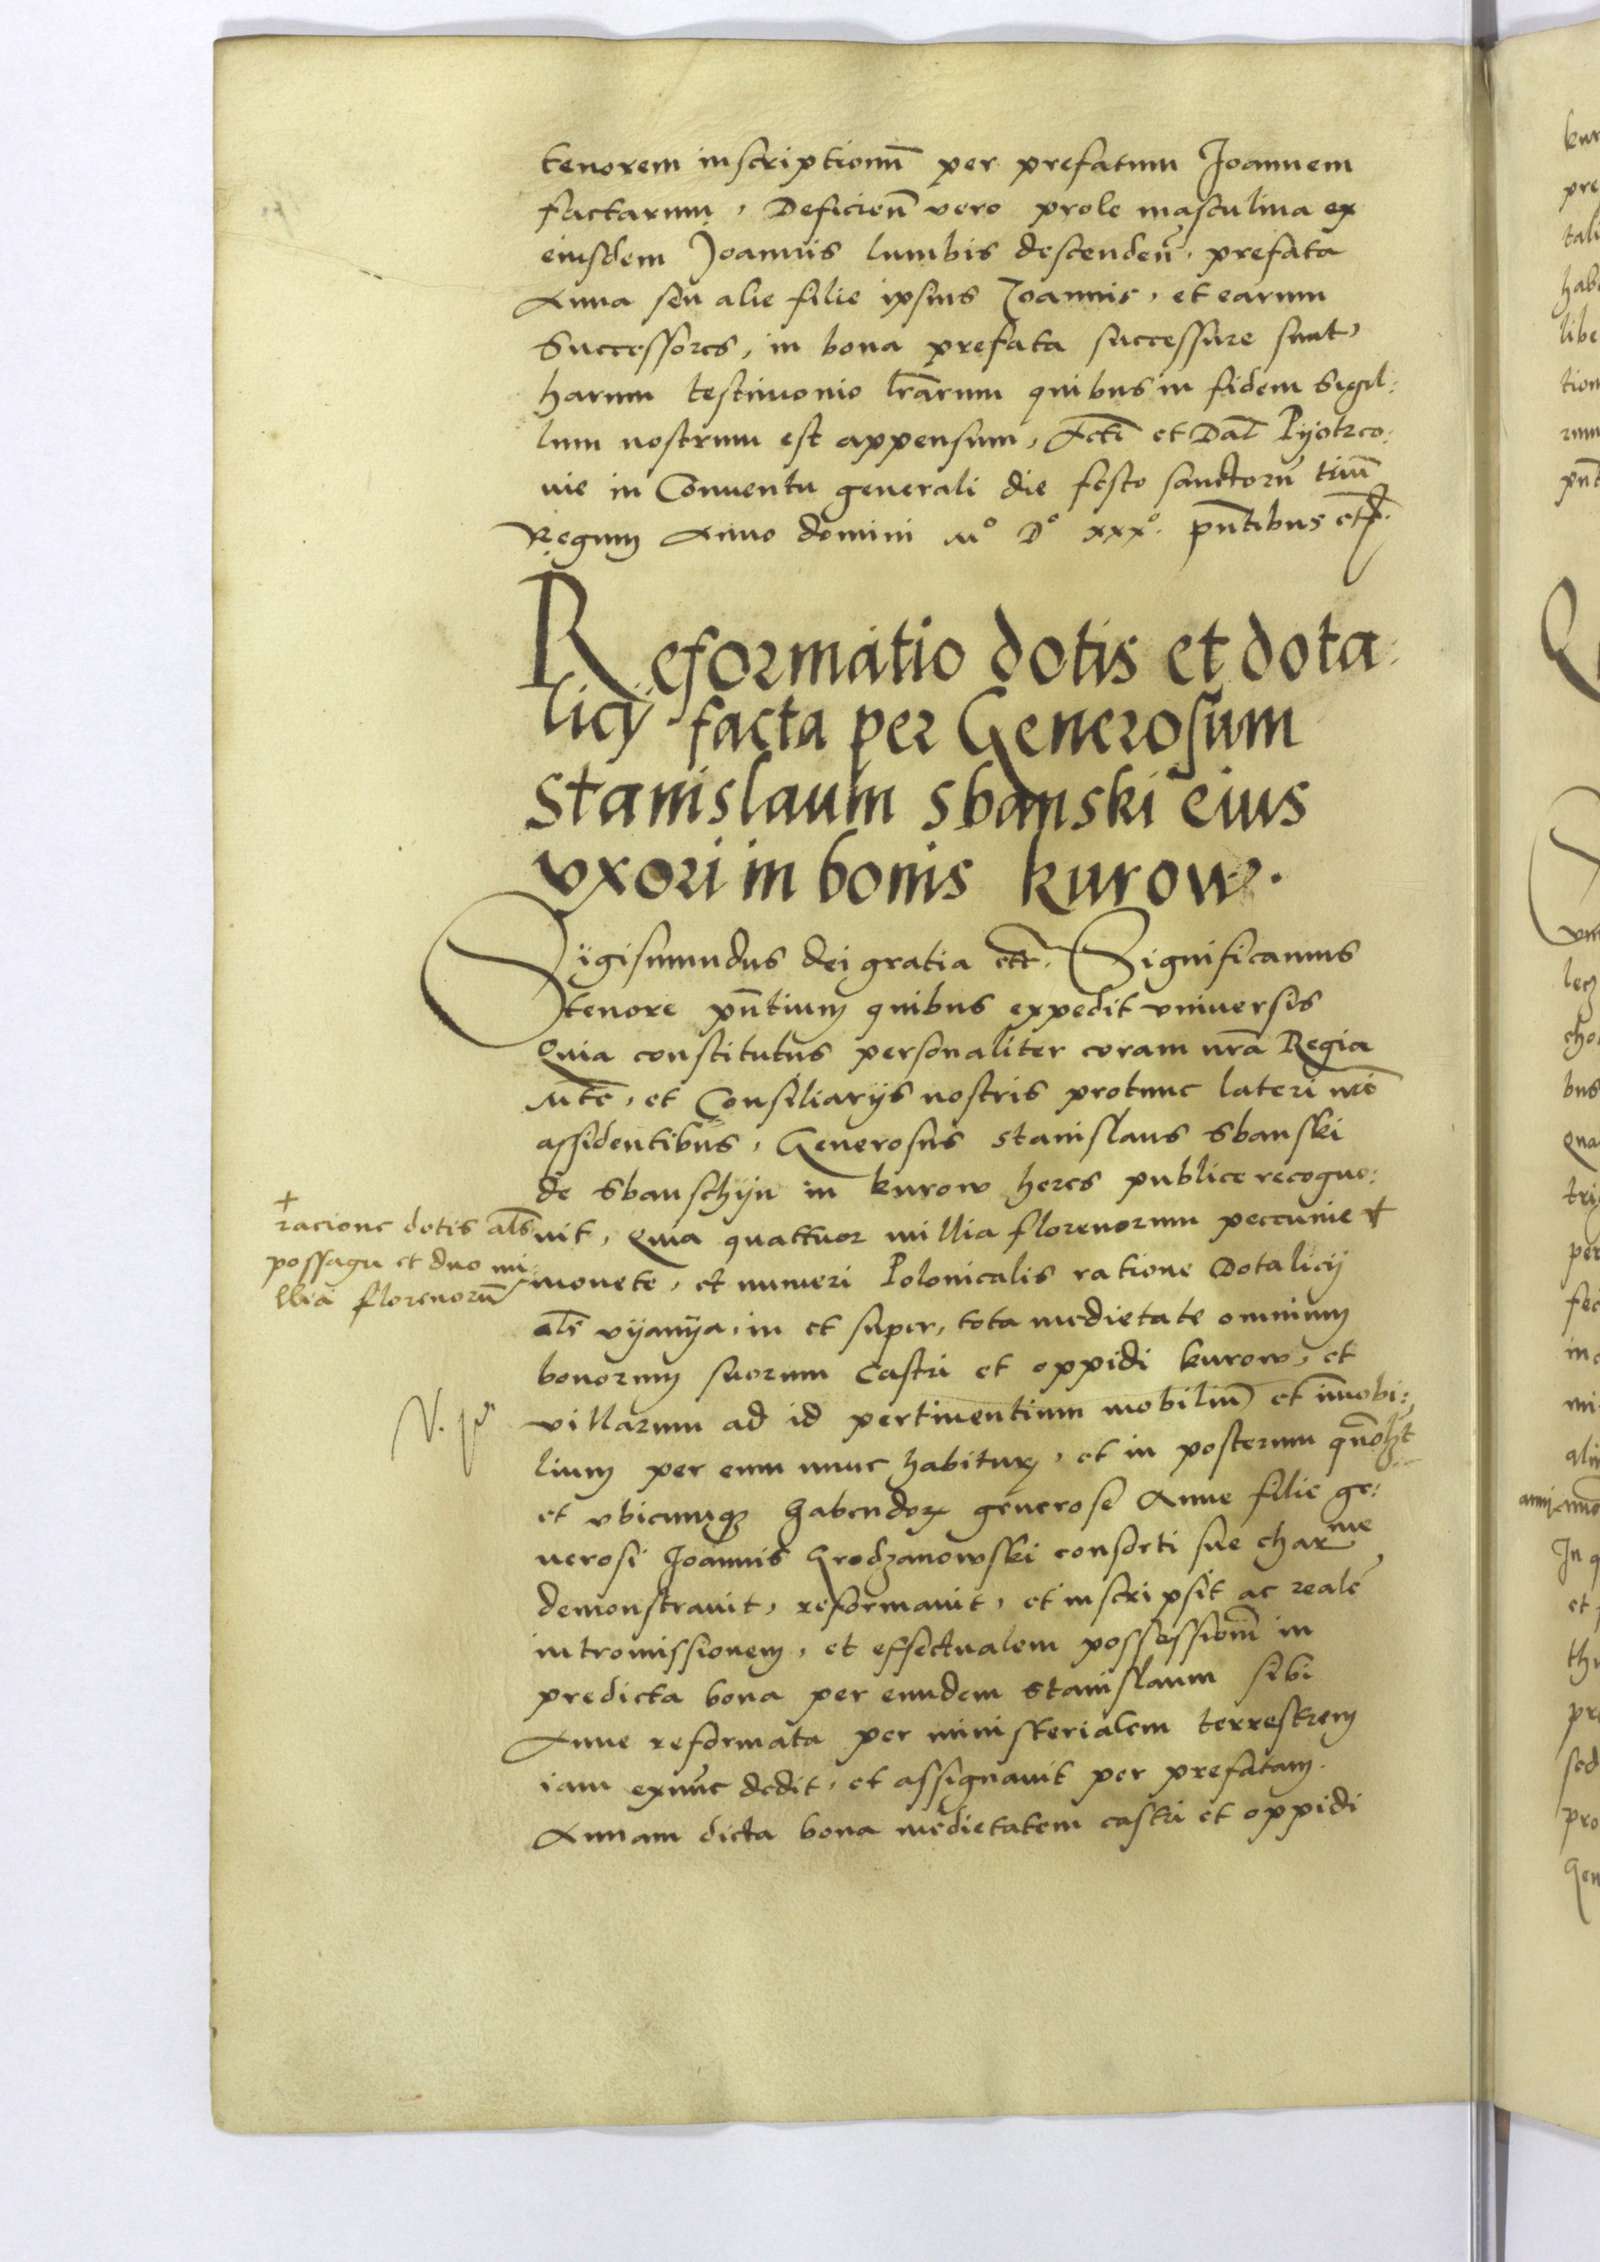 tenorem inscriptionũ per prefatum Joannem
factarum, Deficieñ vero prole masculina ex
eiusdem Joannis lumbis descendeñ, prefata
Anna seu alie filie ipsius Joannis, et earum
Successores, in bona prefata successure sunt,
harum testimonio lrãrum quibus in fidem Sigil:
lum nostrum est appensum, Actũ et Dat̃ Pyotrco:
uie in Conuentu generali die festo sanctorũ triũ
Regum Anno domini Mº Dº xxxº. pñtibus etc̃.
Reformatio dotis et dota:
licij facta per Generosum
Stanislaum Sbanski eius
vxori in bonis kurow.
Sigismundus dei gratia etc̃. Significamus
tenore pñtium quibus expedit vniuersis
Quia constitutus personaliter coram nrã Regia
Mte, et Consiliarijs nostris protunc lateri nrõ
assidentibus, Generosus Stanislaus Sbanski
de Sbanschyn in kurow heres publice recogno:
uit, Quia quattuor millia florenorum peccunie +
monete, et numeri Polonicalis ratione Dotalicij
als̃ vyanya, in et super, tota medietate omnium
bonorum suorum castri et oppidi kurow, et
villarum ad id pertinentium mobiliũ et im̃obi:
lium per eum nunc habitorꝝ, et in posterum qño lꝫt
et vbicunqꝫ habendorꝝ generose Anne filie ge:
nerosi Joannis Grodzanowski consorti sue charme
demonstrauit, reformauit, et inscripsit ac realẽ
intromissionem, et effectualem possessionẽ in
predicta bona per eundem Stanislaum sibi
Anne reformata per ministerialem terrestrem
iam exnunc dedit, et assignauit per prefatam
Annam dicta bona medietatem castri et oppidi
+
racione dotis als̃
possagu et duo mi
llia florenorũ